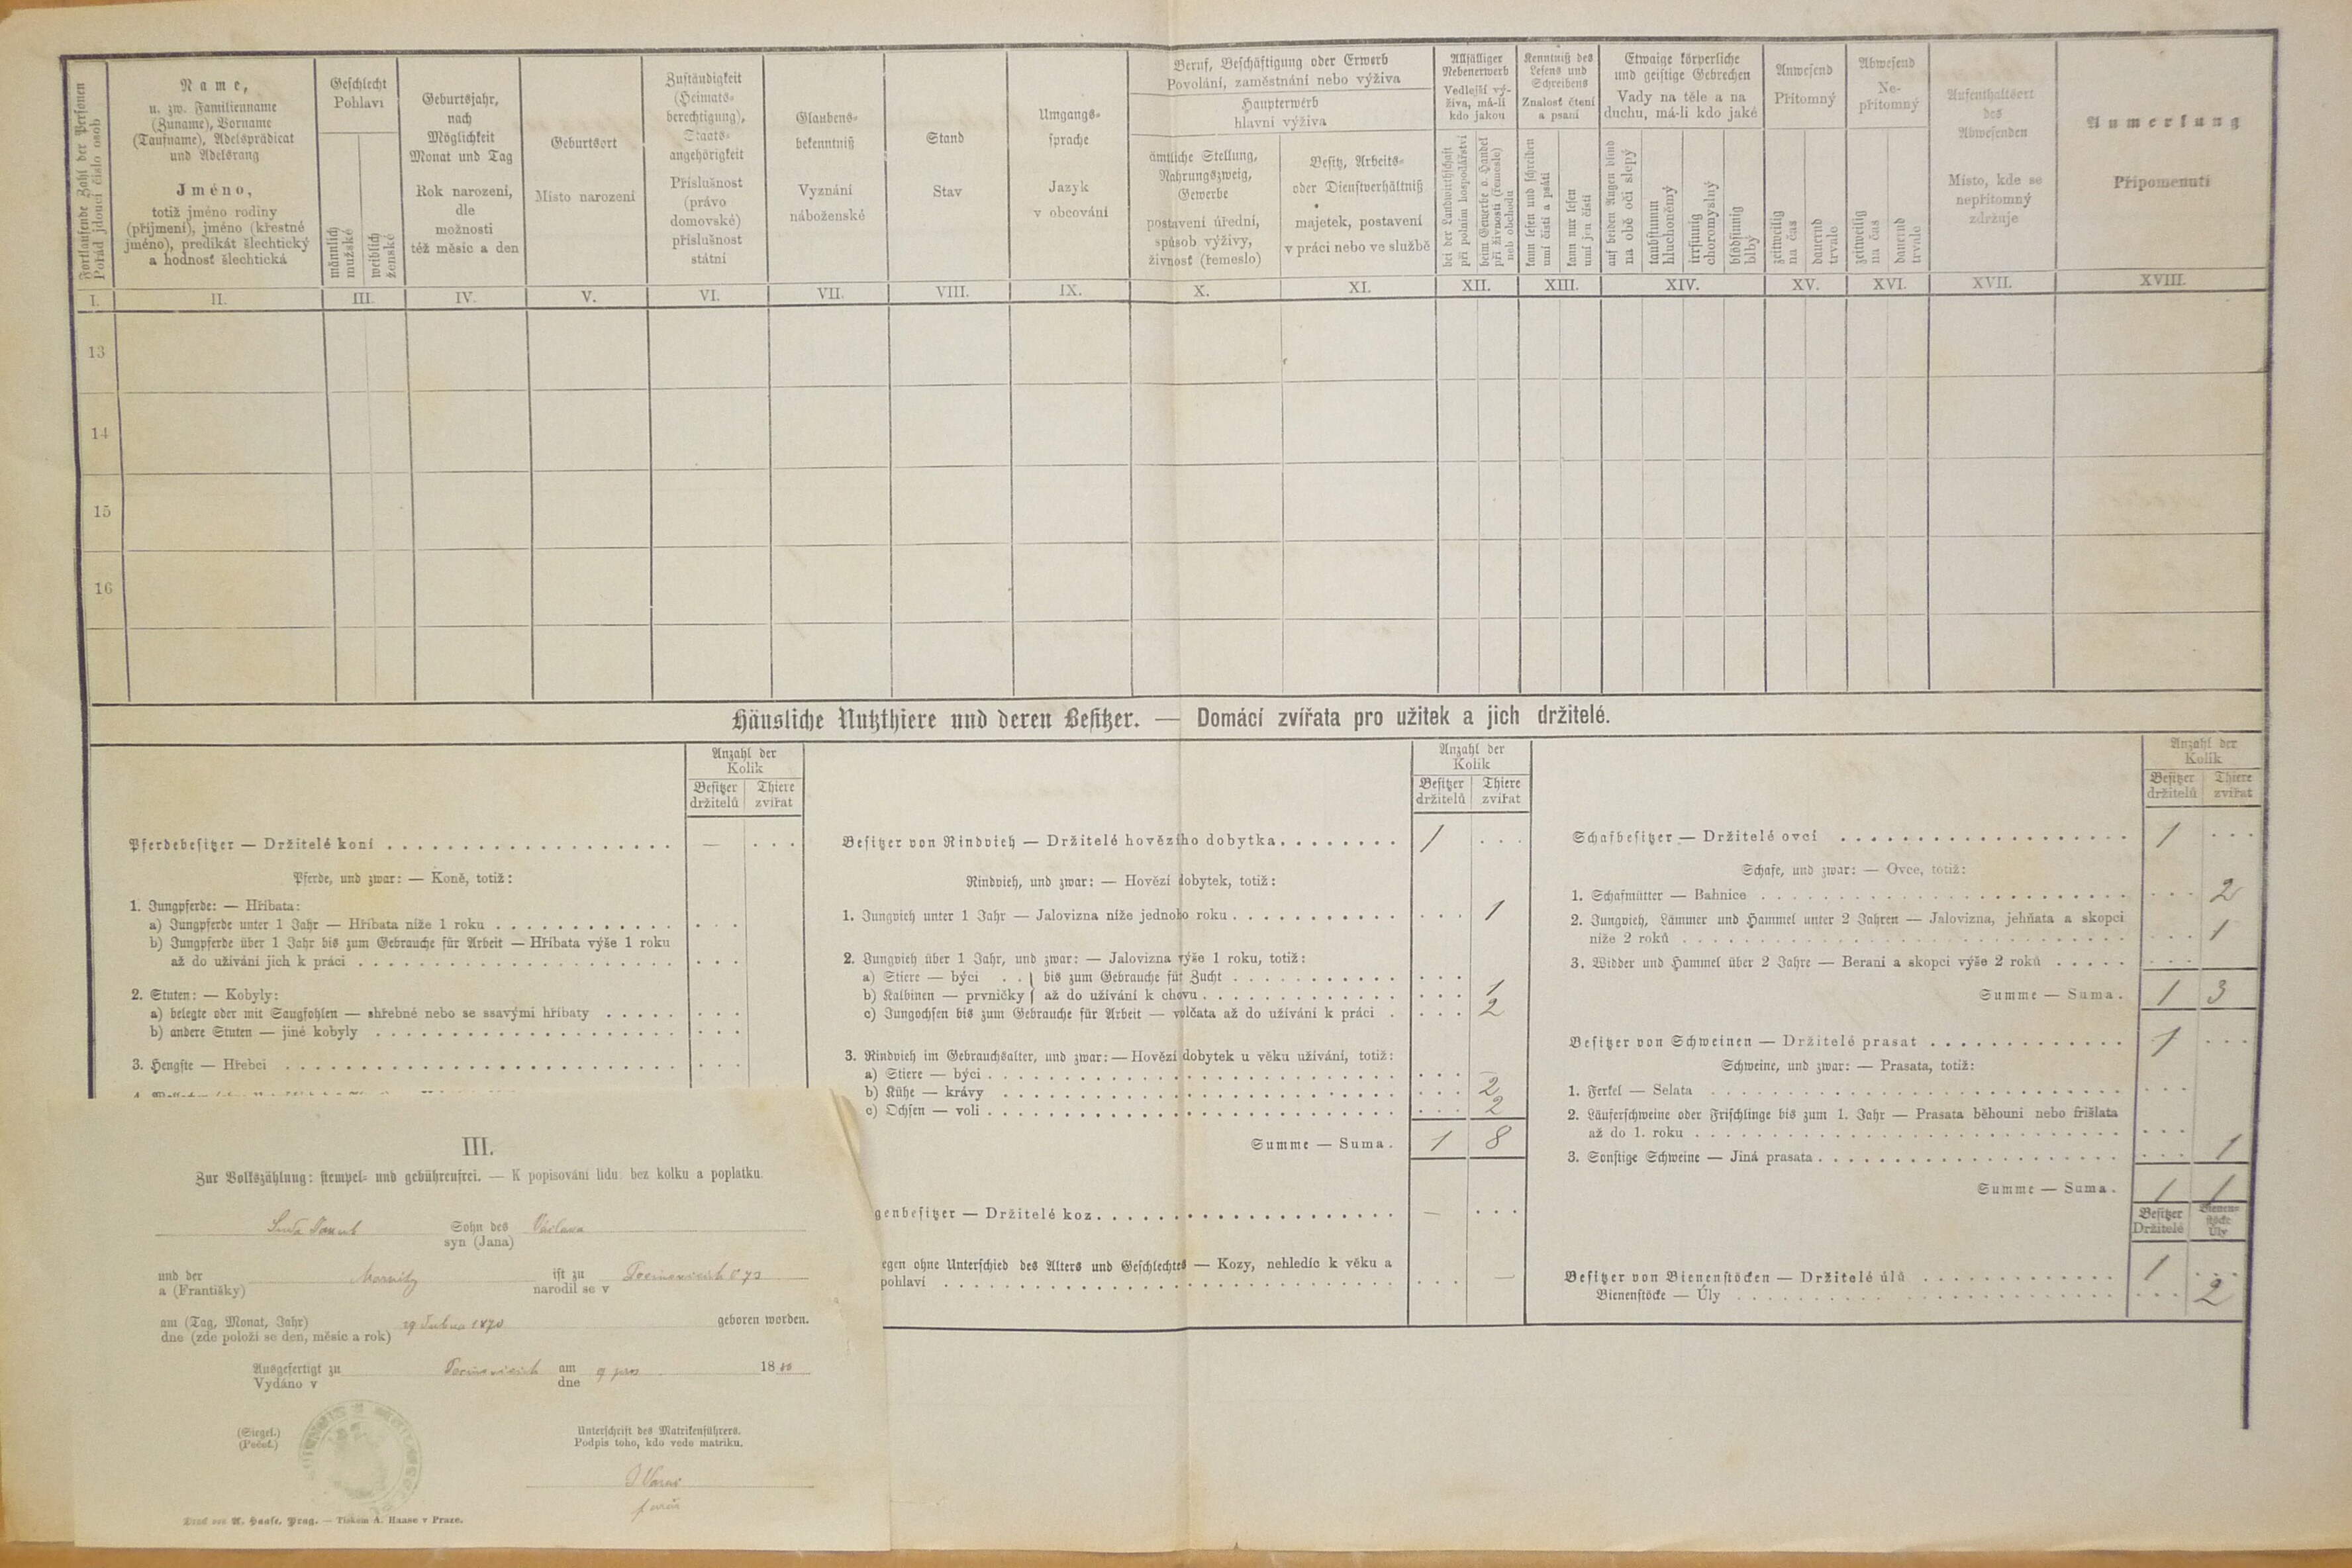 Fortlaufende Zahl der Personen
Pořád jdoucí číslo osob
Name,
u. zw. Familienname
(Zuname), Vorname
(Taufname), Adelsprädicat
und Adelsrang
Jméno,
totiž jméno rodiny
(příjmení), jméno (křestné
jméno), predikát šlechtický
a hodnosť šlechtická
Geschlecht
Pohlaví
männlich
mužské
weiblich
ženské
Geburtsjahr,
nach
Möglichkeit
Monat und Tag
Rok narození,
dle
možnosti
též měsíc a den
Geburtsort
Místo narození
Zuständigkeit
(Heimats-
berechtigung),
Staats-
angehörigkeit
Příslušnost
(právo
domovské)
příslušnost
státní
Glaubens-
bekenntniß
Vyznání
náboženské
Stand
Stav
Umgangs-
sprache
Jazyk
v obcování
Beruf, Beschäftigung oder Erwerb
Povolání, zaměstnání nebo výživa
Haupterwerb
hlavní výživa
ämtliche Stellung,
Nahrungszweig,
Gewerbe
postavení úřední,
spůsob výživy,
živnosť (řemeslo)
Besitz, Arbeits-
oder Dienstverhältniß
majetek, postavení
v práci nebo ve službě
Allfälliger
Nebenerwerb
Vedlejší vý-
živa, má-li
kdo jakou
bei der Landwirthschaft
při polním hospodářství
beim Gewerbe o. Handel
při živnosti (řemesle)
neb obchodu
Kenntniß des
Lesens und
Schreibens
Znalosť čtení
a psaní
kann lesen und schreiben
umí čísti a psáti
kann nur lesen
umí jen čísti
Etwaige körperliche
und geistige Gebrechen
Vady na těle a na
duchu, má-li kdo jaké
auf beiden Augen blind
na obě oči slepý
taubstumm
hluchoněmý
irrsinnig
choromyslný
blödsinnig
blbý
Anwesend
Přítomný
zeitweilig
na čas
dauernd
trvale
Abwesend
Ne-
přítomný
zeitweilig
na čas
dauernd
trvale
Aufenthaltsort
des
Abwesenden
Místo, kde se
nepřítomný
zdržuje
Anmerkung
Připomenutí
I. II. III. IV. V. VI. VII. VIII. IX. X. XI. XII. XIII. XIV. XV. XVI. XVII. XVIII.
13
14
15
16
Häusliche Nutzthiere und deren Besitzer. — Domácí zvířata pro užitek a jich držitelé.
Anzahl der
Kolik
Besitzer Thiere
držitelů zvířat
Pferdebesitzer — Držitelé koní . . . —
Pferde, und zwar: — Koně, totiž:
1. Jungpferde: — Hříbata:
a) Jungpferde unter 1 Jahr — Hříbata níže 1 roku
b) Jungpferde über 1 Jahr bis zum Gebrauche für Arbeit — Hříbata výše 1 roku
až do užívání jich k práci
2. Stuten: — Kobyly:
a) belegte oder mit Saugfohlen — shřebné nebo se ssavými hříbaty
b) andere Stuten — jiné kobyly
3. Hengste — Hřebci
Anzahl der
Kolik
Besitzer Thiere
držitelů zvířat
Besitzer von Rindvieh — Držitelé hovězího dobytka. 1
Rindvieh, und zwar: — Hovězí dobytek, totiž:
1. Jungvieh unter 1 Jahr — Jalovizna níže jednoho roku. 1
2. Jungvieh über 1 Jahr, und zwar: — Jalovizna výše 1 roku, totiž:
a) Stiere — býci . . } bis zum Gebrauche für Zucht
b) Kalbinen — prvničky } až do užívání k chovu. 1
c) Jungochsen bis zum Gebrauche für Arbeit — volčata až do užívání k práci . 2
3. Rindvieh im Gebrauchsalter, und zwar: — Hovězí dobytek u věku užívání, totiž:
a) Stiere — býci
b) Kühe — krávy 2
c) Ochsen — voli 2
Summe — Suma. 1 8
genbesitzer — Držitelé koz. —
egen ohne Unterschied des Alters und Geschlechtes — Kozy, nehledíc k věku a
pohlaví —
Anzahl der
Kolik
Besitzer Thiere
držitelů zvířat
Schafbesitzer — Držitelé ovcí 1
Schafe, und zwar: — Ovce, totiž:
1. Schafmütter — Bahnice 2
2. Jungvieh, Lämmer und Hammel unter 2 Jahren — Jalovizna, jehňata a skopci
níže 2 roků 1
3. Widder und Hammel über 2 Jahre — Berani a skopci výše 2 roků
Summe — Suma. 1 3
Besitzer von Schweinen — Držitelé prasat 1
Schweine, und zwar: — Prasata, totiž:
1. Ferkel — Selata
2. Läuferschweine oder Frischlinge bis zum 1. Jahr — Prasata běhouni nebo frišlata
až do 1. roku
3. Sonstige Schweine — Jiná prasata 1
Summe — Suma. 1 1
Besitzer Bienen-
stöcke
Držitelé Úly
Besitzer von Bienenstöcken — Držitelé úlů 1
Bienenstöcke — Úly 2
III.
Zur Volkszählung: stempel- und gebührenfrei. — K popisování lidu bez kolku a poplatku.
Sohn des Václava
syn (Jana)
und der ist zu
a (Františky) narodil se v
am (Tag, Monat, Jahr) 29 dubna 1870 geboren worden.
dne (zde položí se den, měsíc a rok)
Ausgefertigt zu am 9 pros 18
Vydáno v dne
(Siegel.)
(Pečeť.)
Unterschrift des Matrikenführers.
Podpis toho, kdo vede matriku.
farář
Druck von A. Haase, Prag. — Tiskem A. Haase v Praze.